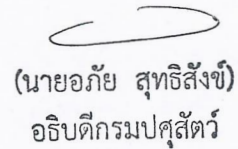 (นายอภัย สุทธิสังข์)
อธิบดีกรมปศุสัตว์